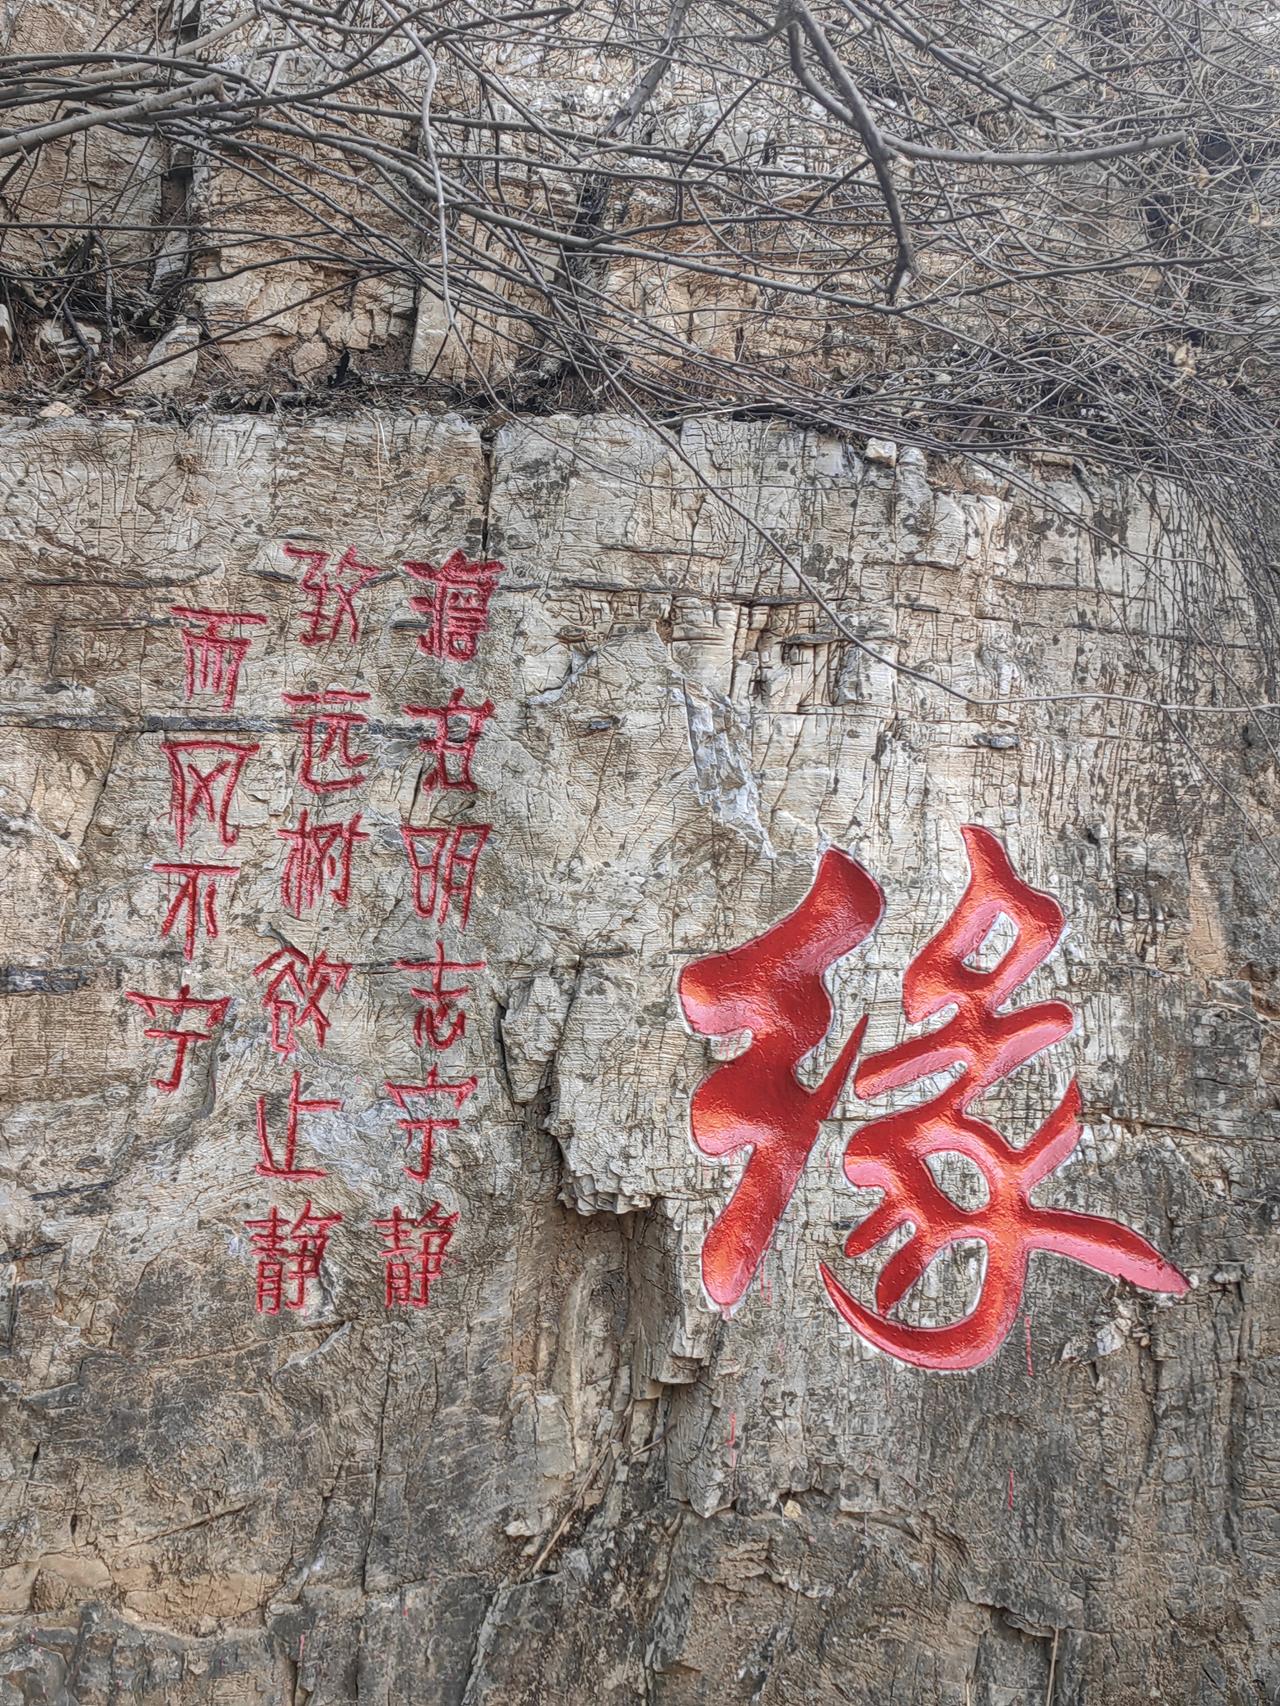 缘
澹泊明志宁静
致远树欲止静
而风不宁